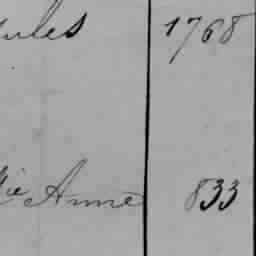 ules 1768
ie Anne 833